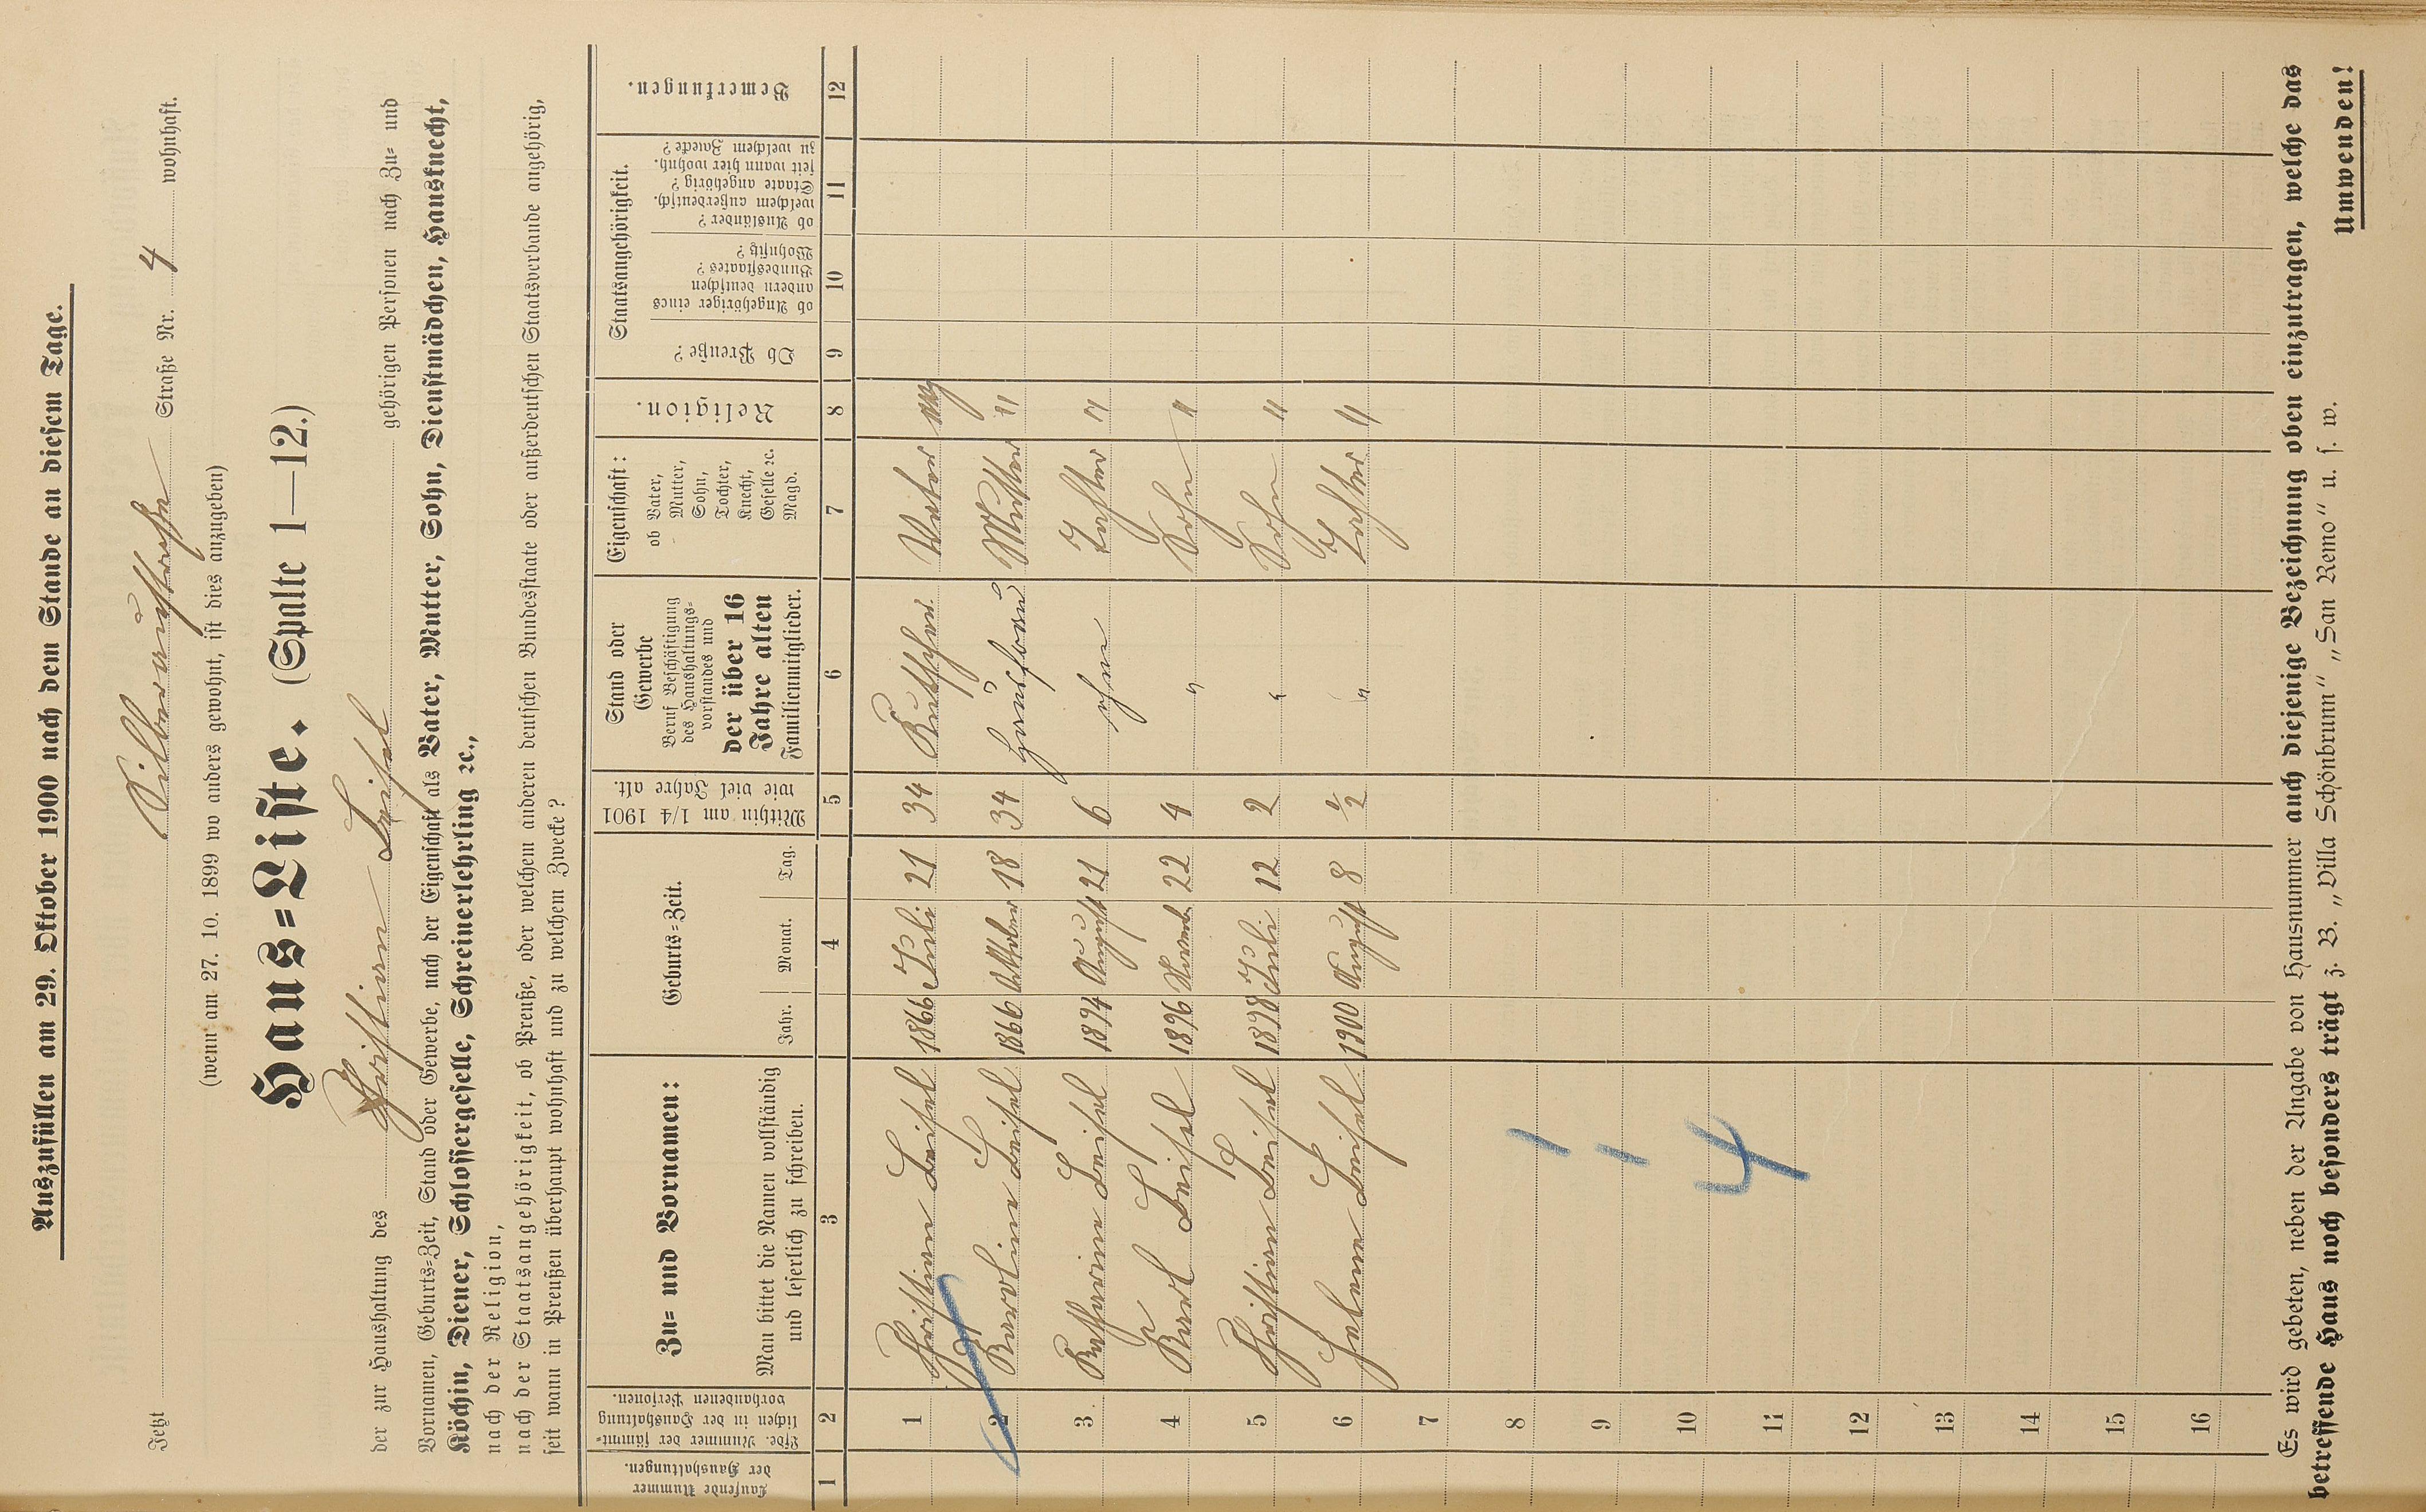 Auszufüllen am 29. Oktober 1900 nach dem Stande an diesem Tage.
Jetzt Silberaustraße Straße Nr. 4 wohnhaft.
(wenn am 27. 10. 1899 wo anders gewohnt, ist dies anzugeben)
Haus=Liste. (Spalte 1—12.)
der zur Haushaltung des Christian Beisel gehörigen Personen nach Zu= und
Vornamen, Geburts=Zeit, Stand oder Gewerbe, nach der Eigenschaft als Vater, Mutter, Sohn, Dienstmädchen, Hausknecht,
Köchin, Diener, Schlossergeselle, Schreinerlehrling ꝛc.,
nach der Religion,
nach der Staatsangehörigkeit, ob Preuße, oder welchem anderen deutschen Bundesstaate oder außerdeutschen Staatsverbande angehörig,
seit wann in Preußen überhaupt wohnhaft und zu welchem Zwecke?
Laufende Nummer der Haushaltungen.
Lfde. Nummer der sämmtlichen in der Haushaltung vorhandenen Personen.
Zu= und Vornamen:
Man bittet die Namen vollständig
und leserlich zu schreiben.
Geburts=Zeit.
Jahr. Monat. Tag.
Mithin am 1/4 1901
wie viel Jahre alt.
Stand oder
Gewerbe
Beruf Beschäftigung
des Haushaltungs=
vorstandes und
der über 16
Jahre alten
Familienmitglieder.
Eigenschaft:
ob Vater,
Mutter,
Sohn,
Tochter,
Knecht,
Geselle ꝛc.
Magd.
Religion.
Staatsangehörigkeit.
Ob Preuße?
ob Angehöriger eines
andern deutschen
Bundesstaates?
Wohnsitz?
ob Ausländer?
welchem außerdeutsch.
Staate angehörig?
seit wann hier wohnh.
zu welchem Zwecke?
Bemerkungen.
1 2 3 4 5 6 7 8 9 10 11 12
1 Christian Beisel 1866 Juli 21 34 Kutscher Vater evg
2 Karoline Beisel 1866 Oktober 18 34 Hausfrau Mutter "
3 Katharine Beisel 1894 August 21 6 ohne Tochter "
4 Karl Beisel 1896 Novemb 22 4 " Sohn "
5 Christian Beisel 1898 Juli 12 2 " Sohn "
6 Helene Beisel 1900 August 8 1/2 " Tochter "
7
8
9
10 4
11
12
13
14
15
16
Es wird gebeten, neben der Angabe von Hausnummer auch diejenige Bezeichnung oben einzutragen, welche das
betreffende Haus noch besonders trägt z. B. „Villa Schönbrunn" „San Remo" u. s. w.
Umwenden!